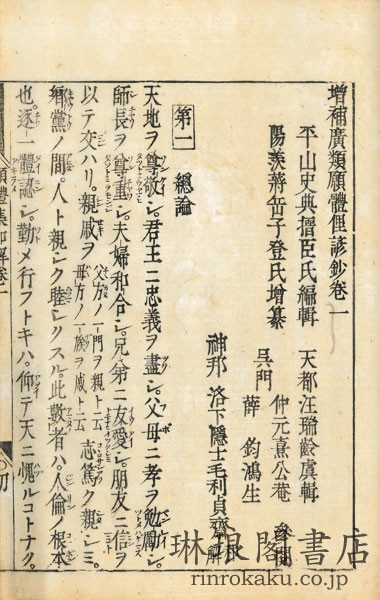 增補廣類願體俚諺鈔卷一
平山史典搢臣氏編輯 天都汪瑞齡虞輯
陽羨蔣岳子登氏增纂 仲元熹公菴
呉門 薛鈞鴻生 參閱
神那 洛下隱士毛利貞齋
第一 總論
天地ヲ尊敬シ。君王ニ忠義ヲ盡シ。父母ニ孝ヲ勉勵シ。
師長ヲ尊重シ。夫婦和合シ。兄弟ニ友愛シ。朋友ニ信ヲ
以テ交ハリ。親戚ヲ 父方ノ一門ヲ親ト云 母方ノ一族ヲ戚ト云 志篤ク親シミ。
鄉黨ノ間。人ト親シク睦シリスル。此數者ハ。人倫ノ根本
也。逐一體認シ。勤メ行フトキハ。仰テ天ニ愧ルコトナク。
卷一
琳琅閣書店
rinrokaku.co.jp